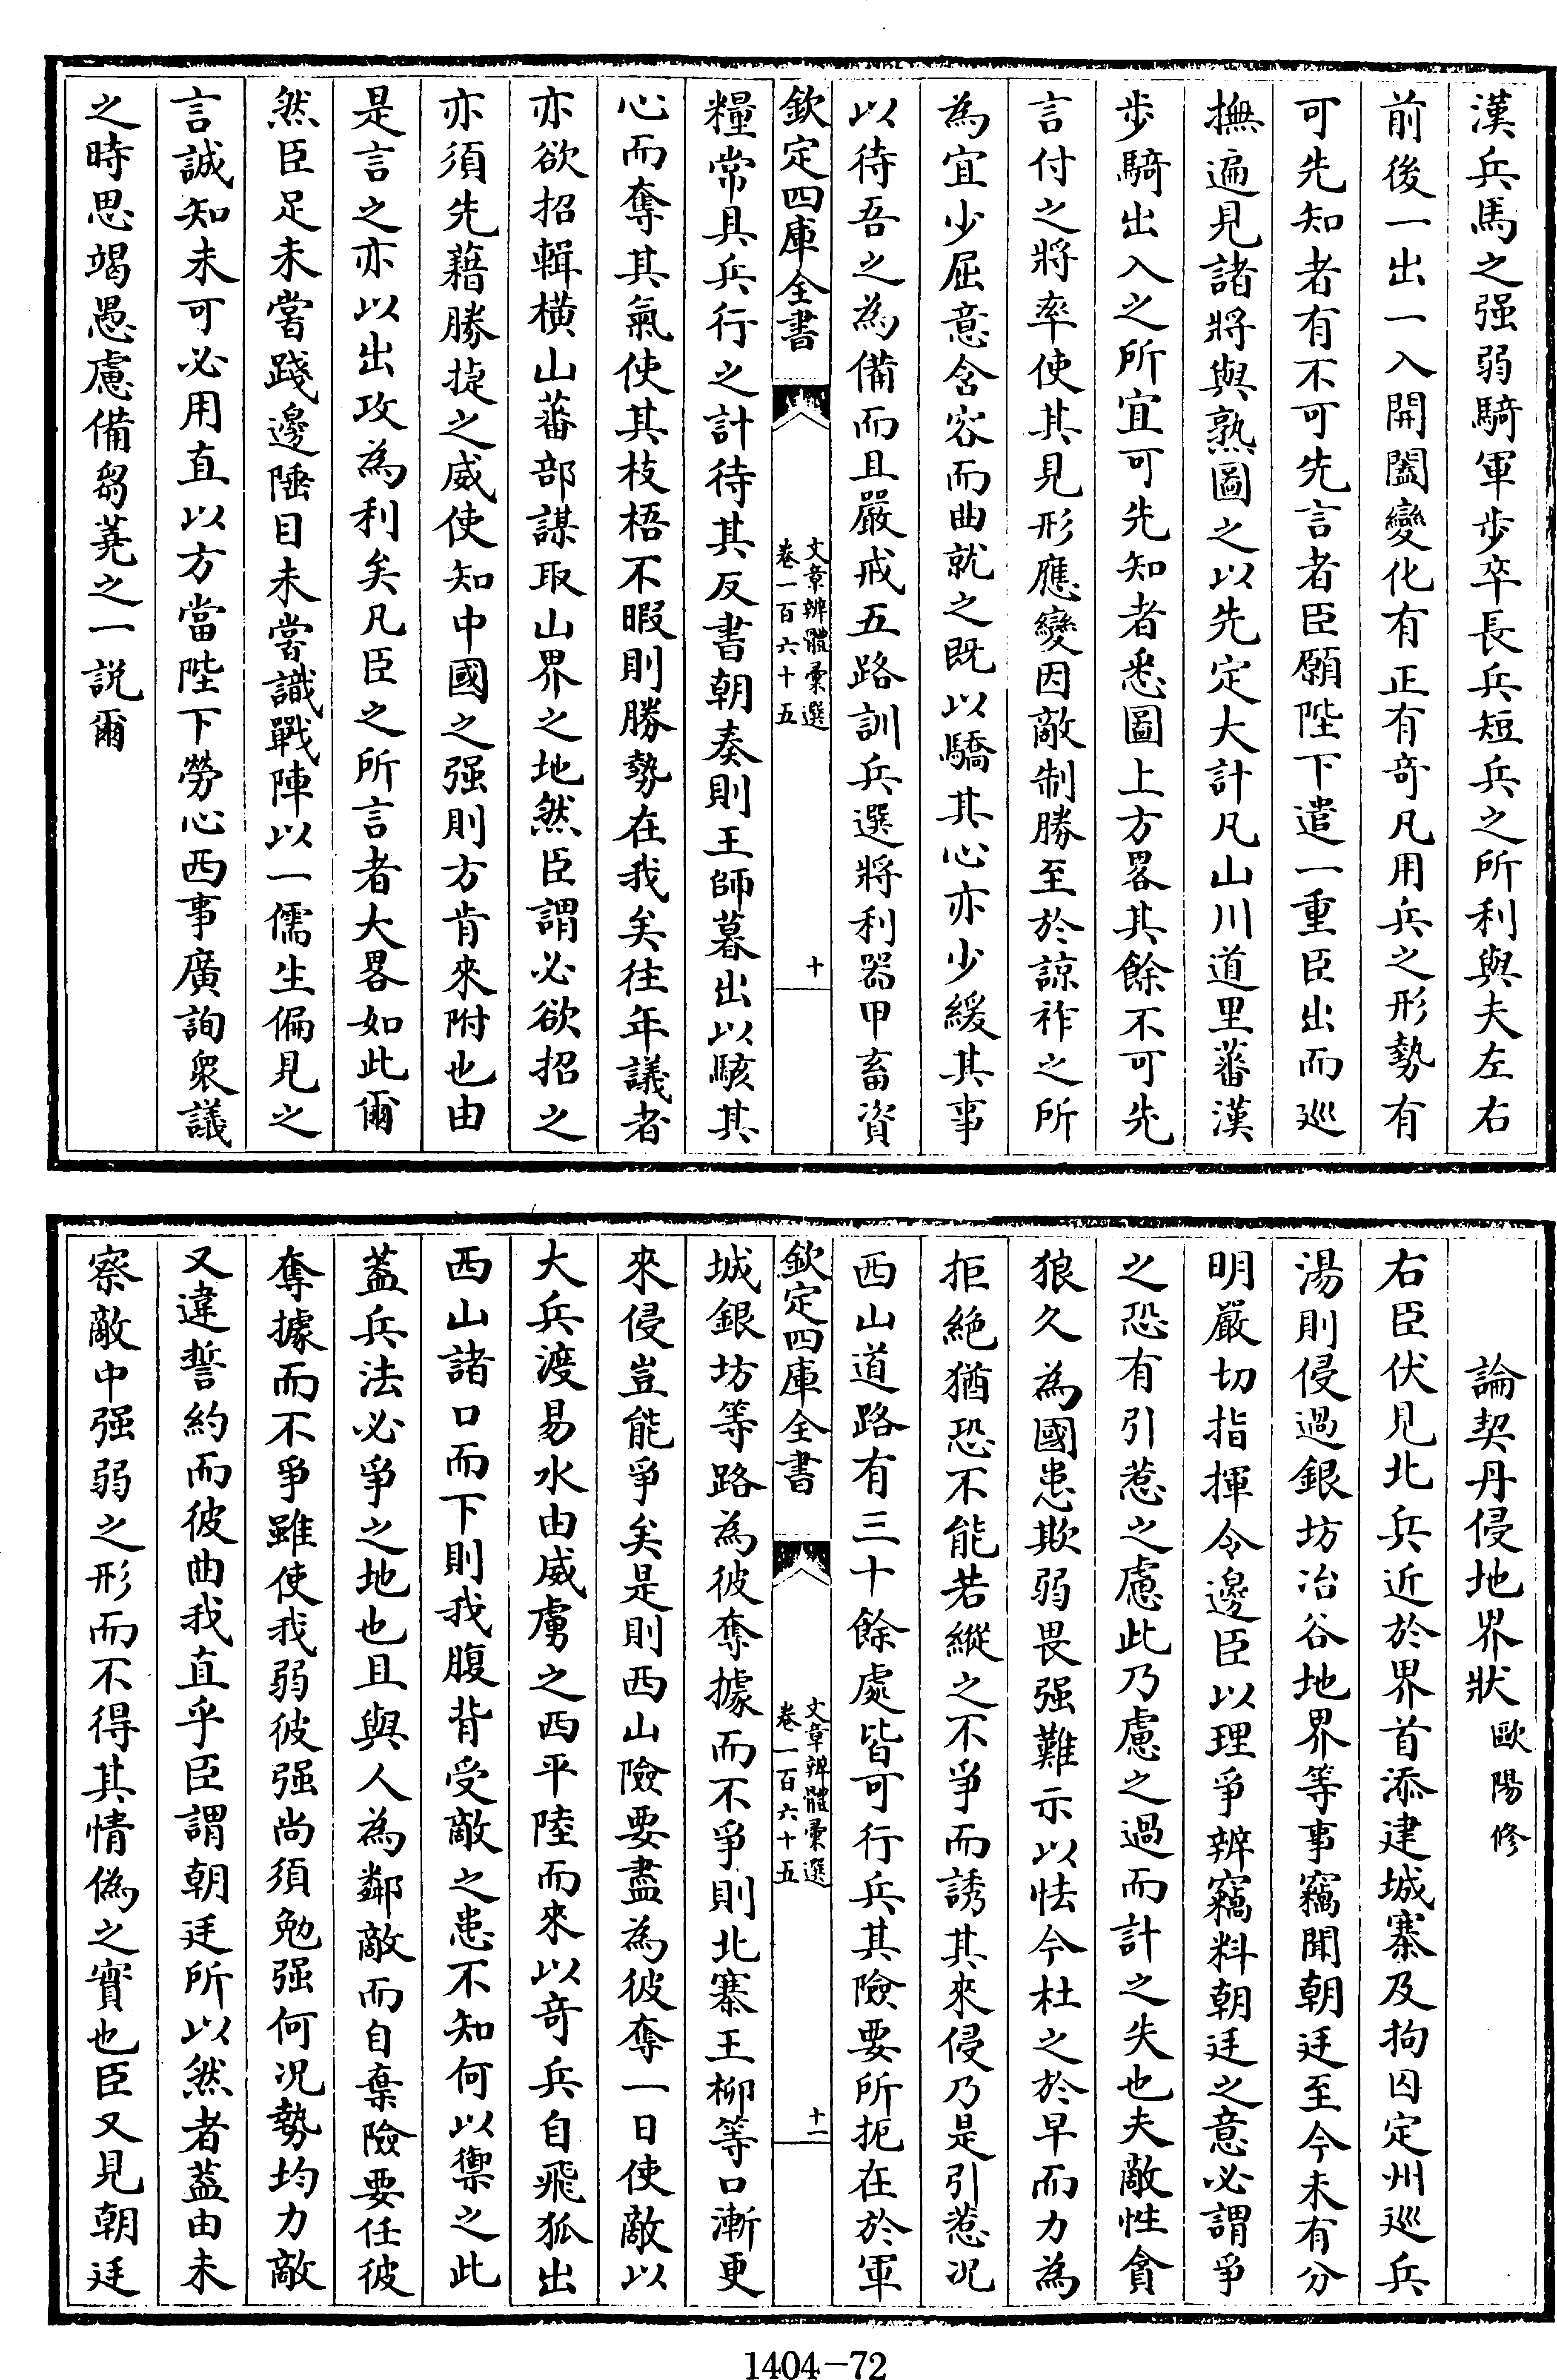 漢兵馬之强弱騎軍歩卒長兵短兵之所利與夫左右
前後一出一入開闔變化有正有竒凡用兵之形勢有
可先知者有不可先言者臣願陛下遣一重臣出而巡
撫遍見諸將與熟圖之以先定大計凡山川道里蕃漢
歩騎出入之所宜可先知者悉圖上方畧其餘不可先
言付之將率使其見形應變因敵制勝至於諒祚之所
為宜少屈意含容而曲就之既以驕其心亦少緩其事
以待吾之為備而且嚴戒五路訓兵選將利器甲畜資
欽定四庫全書
文章辨體彙選
卷一百六十五
十
糧常具兵行之計待其反書朝奏則王師暮出以駭其
心而奪其氣使其枝梧不暇則勝勢在我矣往年議者
亦欲招輯橫山蕃部謀取山界之地然臣謂必欲招之
亦須先藉勝捷之威使知中國之强則方肯來附也由
是言之亦以出攻為利矣凡臣之所言者大畧如此爾
然臣足未嘗踐邊陲目未嘗識戰陣以一儒生偏見之
言誠知未可必用直以方當陛下勞心西事廣詢衆議
之時思竭愚慮備芻蕘之一説爾
論契丹侵地界狀 歐陽修
右臣伏見北兵近於界首添建城寨及拘囚定州巡兵
湯則侵過銀坊冶谷地界等事竊聞朝廷至今未有分
明嚴切指揮令邊臣以理爭辨竊料朝廷之意必謂爭
之恐有引惹之慮此乃慮之過而計之失也夫敵性貪
狼久為國患欺弱畏强難示以怯今杜之於早而力為
拒絶猶恐不能若縱之不爭而誘其來侵乃是引惹况
西山道路有三十餘處皆可行兵其險要所扼在於軍
欽定四庫全書
文章辨體彙選
卷一百六十五
十一
城銀坊等路為彼奪據而不爭則北寨王柳等口漸更
來侵豈能爭矣是則西山險要盡為彼奪一日使敵以
大兵渡易水由威虜之西平陸而來以竒兵自飛狐出
西山諸口而下則我腹背受敵之患不知何以禦之此
蓋兵法必爭之地也且與人為鄰敵而自棄險要任彼
奪據而不爭雖使我弱彼强尚須勉强何况勢均力敵
又違誓約而彼曲我直乎臣謂朝廷所以然者蓋由未
察敵中强弱之形而不得其情偽之實也臣又見朝廷
1404-72